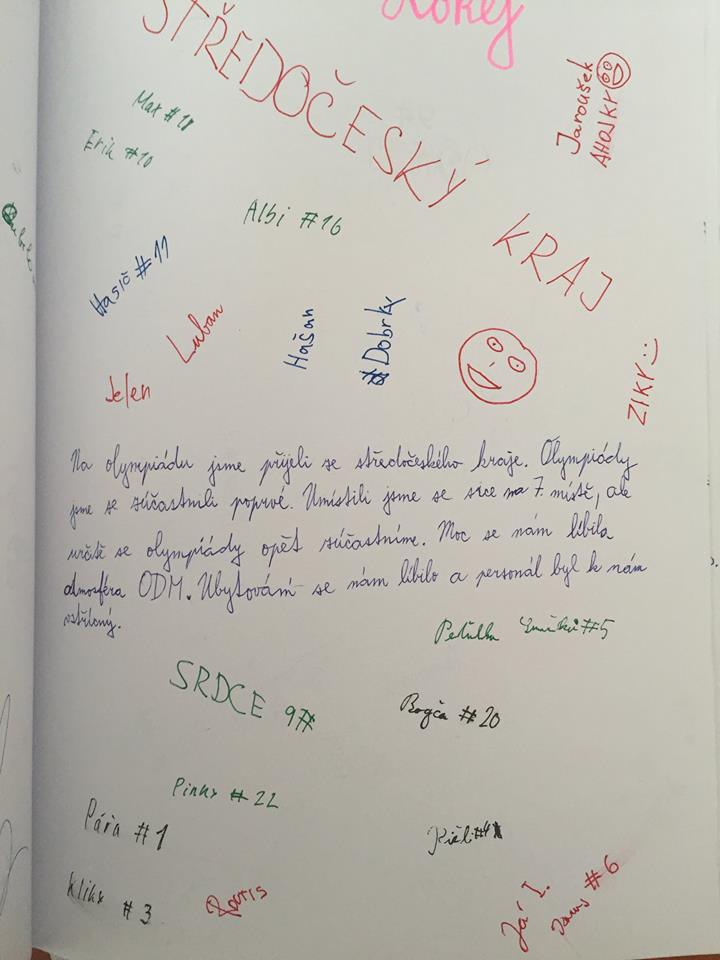 STŘEDOČESKÝ KRAJ
Jaroušek
AHOJKY
Max #18
Erik #10
Albi #16
Hasič #11
Luban
Hašan
#Dobrky
Jelen
ZIKY :)
Na olympiádu jsme přijeli ze středočeského kraje. Olympiády
jsme se zúčastnili poprvé. Umístili jsme se sice na 7. místě, ale
určitě se olympiády opět zúčastníme. Moc se nám líbila
atmosféra ODM. Ubytování se nám líbilo a personál byl k nám
vstřícný.
#5
SRDCE 97#
Bogča #20
Pinky #22
Pářa #1
Kliky #3
Já I.
#6